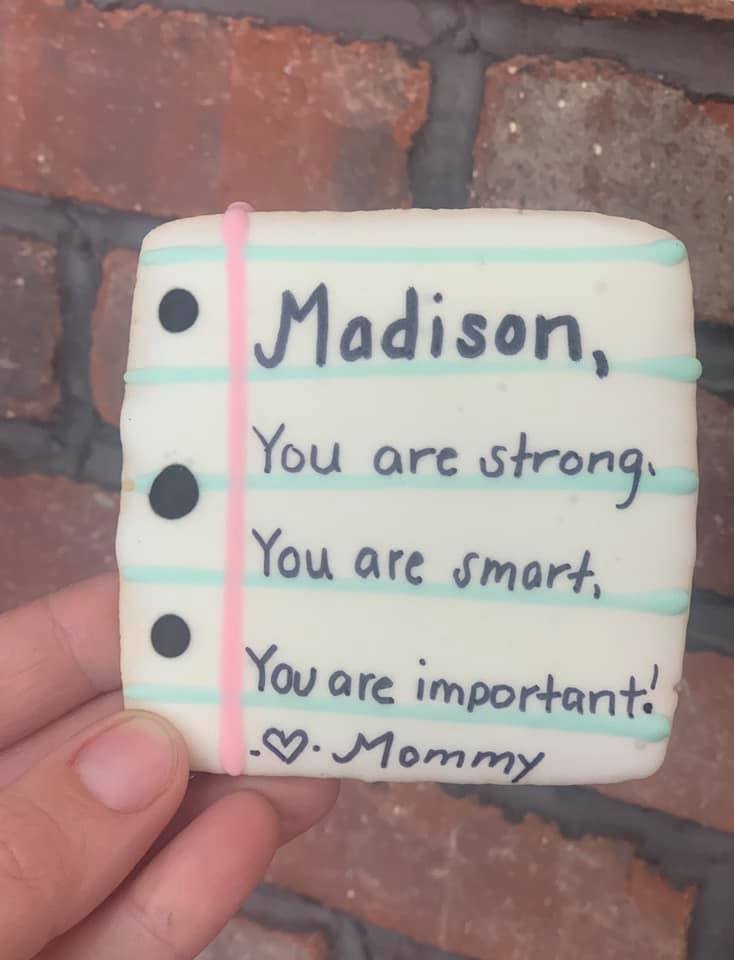 Madison,
You are strong.
You are smart.
You are important!
.♡. Mommy